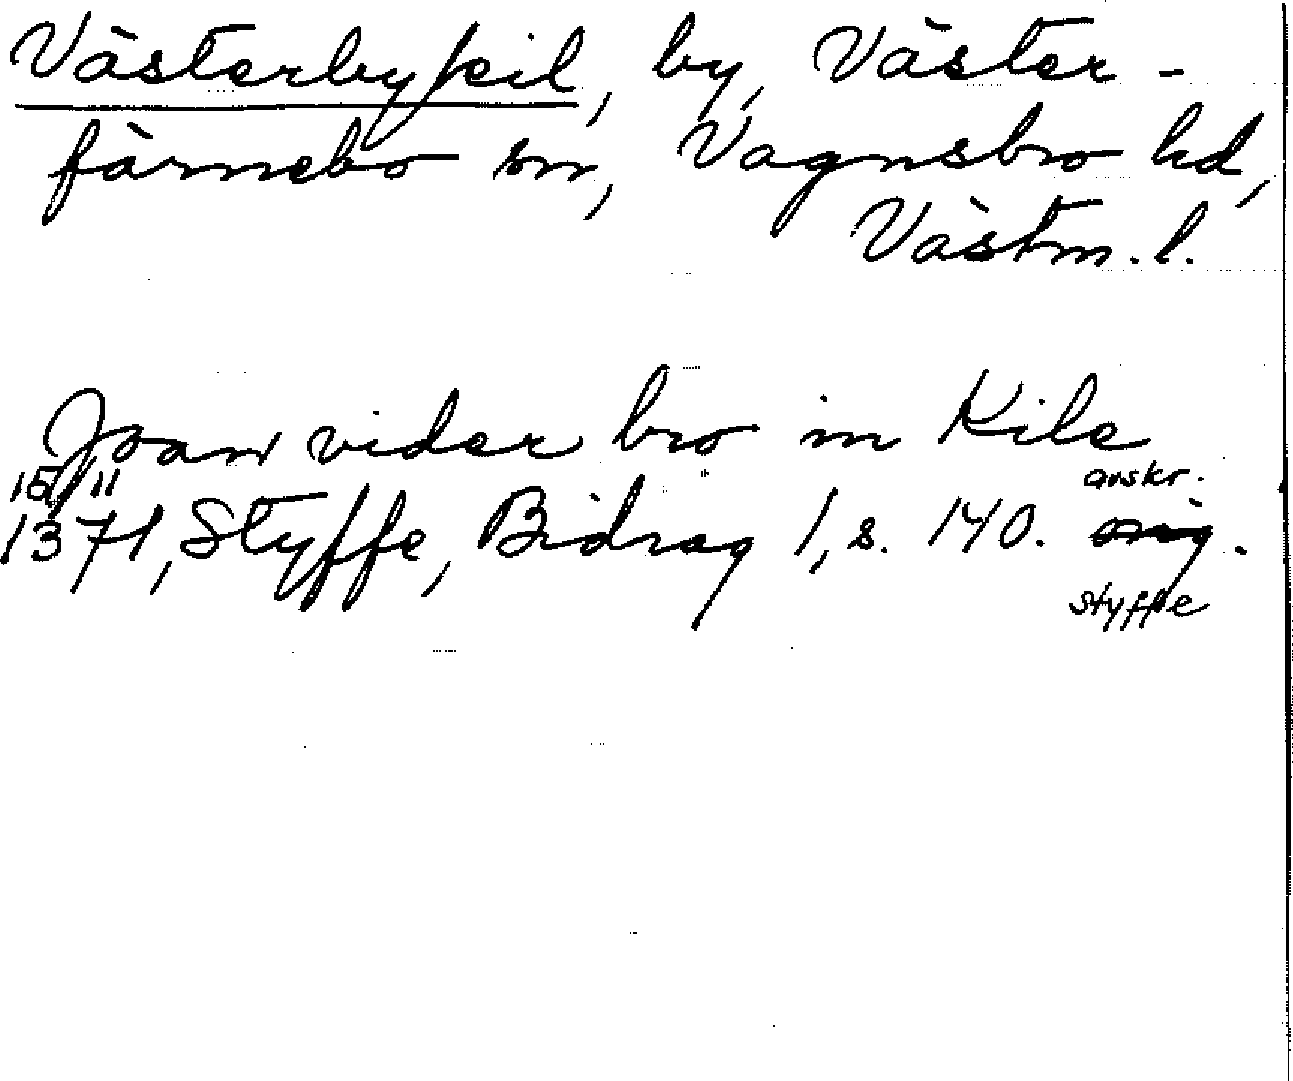 Västerbykil, by, Väster-
färnebo sn, Vagnsbro hd,
Västm. l.
Joan vider bro in Kile
15/11 avskr.
1371, Styffe, Bidrag 1, s. 140. orig.
styffe